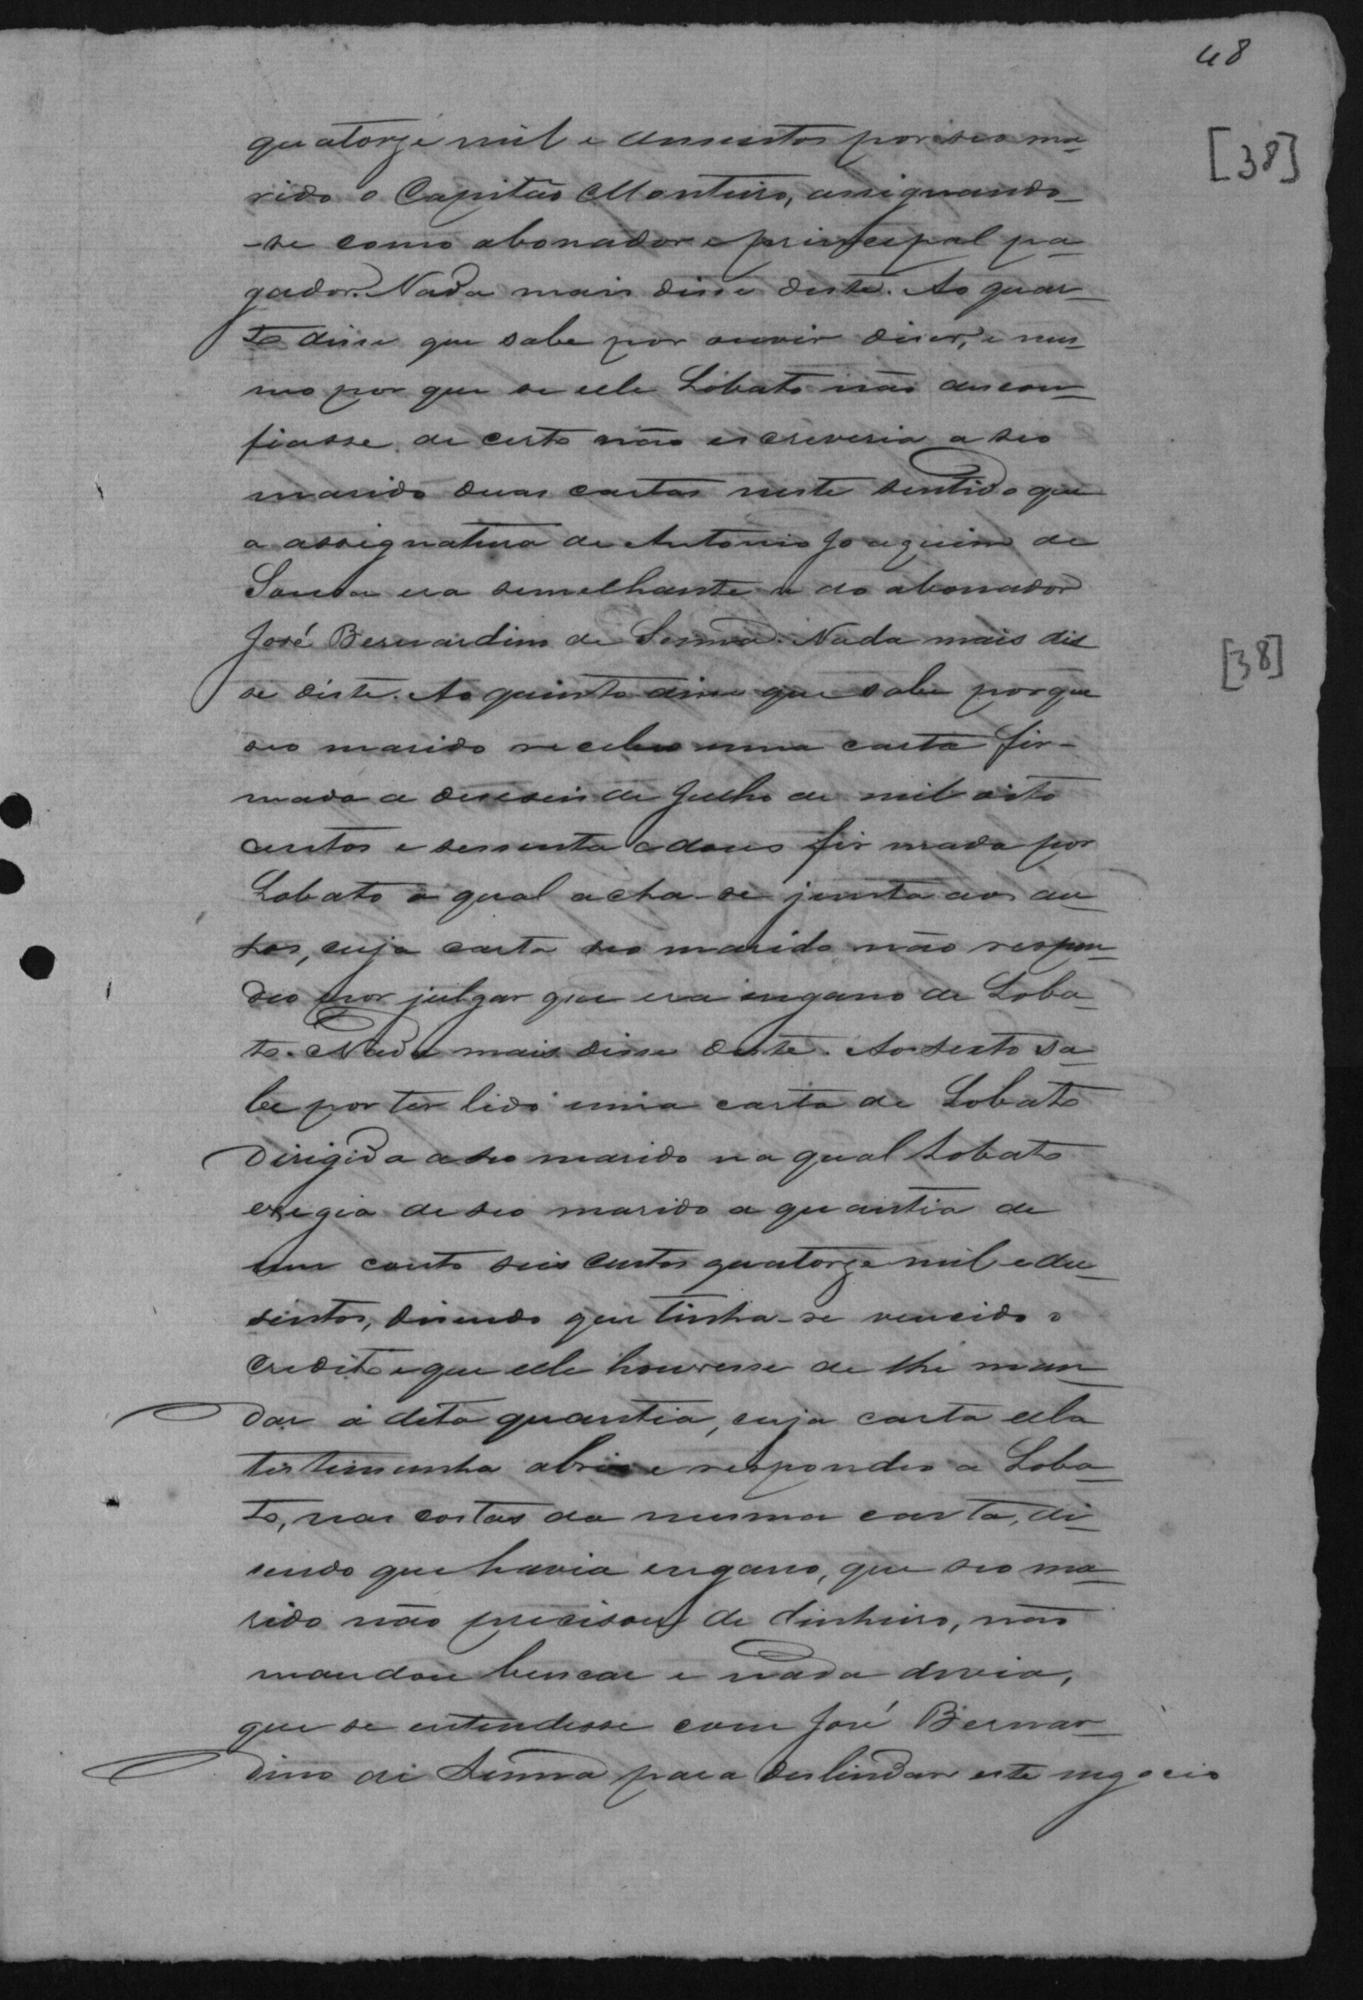 48
[38]
quatorze mil e dusentos por seo ma-
rido o Capitão Monteiro, assignando-
-se como abonador e principal pa-
gador. Nada mais disse deste. Ao quar-
to disse que sabe por ouvir diser, e mes-
mo por que se elle Lobato não descon-
fiasse, de certo não escreveria a seo
marido duas cartas neste sentido que
a assignatura de Antonio Joaquim de
Sousa era semelhante a do abonador
José Bernardino de Senna. Nada mais dis
[38]
se deste. Ao quinto disse que sabe porque
seo marido recebeo uma carta fir-
mada a deseseis de Julho de mil oito
centos e sessenta e dous firmada por
Lobato a qual acha-se junta aos au-
tos, cuja carta seo marido não respon-
deo por julgar que era engano de Loba-
to. Nada mais disse deste. Ao sexto sa-
be por ter lido uma carta de Lobato
dirigida a seo marido na qual Lobato
exigia de seo marido a quantia de
um conto seis centos quatorze mil e du-
sentos, disendo que tinha-se vencido o
credito e que elle houvesse de lhe man-
dar a dita quantia, cuja carta ella
testemunha abrio e respondeo a Loba-
to, nas costas da mesma carta, di-
sendo que havia engano, que seo ma-
rido não precisou de dinheiro, não
mandou buscar e nada devia,
que se entendesse com José Bernar-
dino de Senna para deslindar este negocio